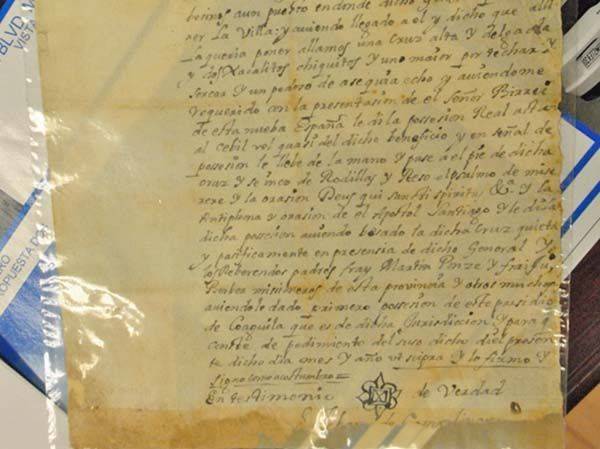 BLVD
VISTA
benimos a un pueblo en donde dicho
ser La Villa: y auiendo llegado a el y dicho que alli
la queria poner allamos una Cruz alta y delgada
y dos Xacalitos chiquitos y uno maior por techar y
sercar y un pedaso de asequia echo y auiendome
requerido con la presentasion de el señor Birrei
de esta nueba España le di la posesion Real actual
al cebil vel quasi del dicho beneficio y en señal de
posesion le llebe de la mano y pase a el pie de dicha
cruz y se inco de Rodillas y Reso el psalmo de mise
rere y la orasion Deus qui santi spiritu &a y la
Antiphona y orasion de el Apostol Santiago y le di la
dicha posesion auiendo besado la dicha Cruz quieta
y pasificamente en presensia de dicho General y
los Reberendos padres fray Martin Ponze y frai
misioneros de esta provincia y otros muchos
auiendole dado primero posesion de este presidio
de Coaguila que es de dicha Jurisdicion y para q
conste de pedimiento del suso dicho di el presen
te dicho dia mes y año ut supra y lo firmo y
signo como acostumbro =
En testimonio de Verdad
RO
ROPUESTA DE